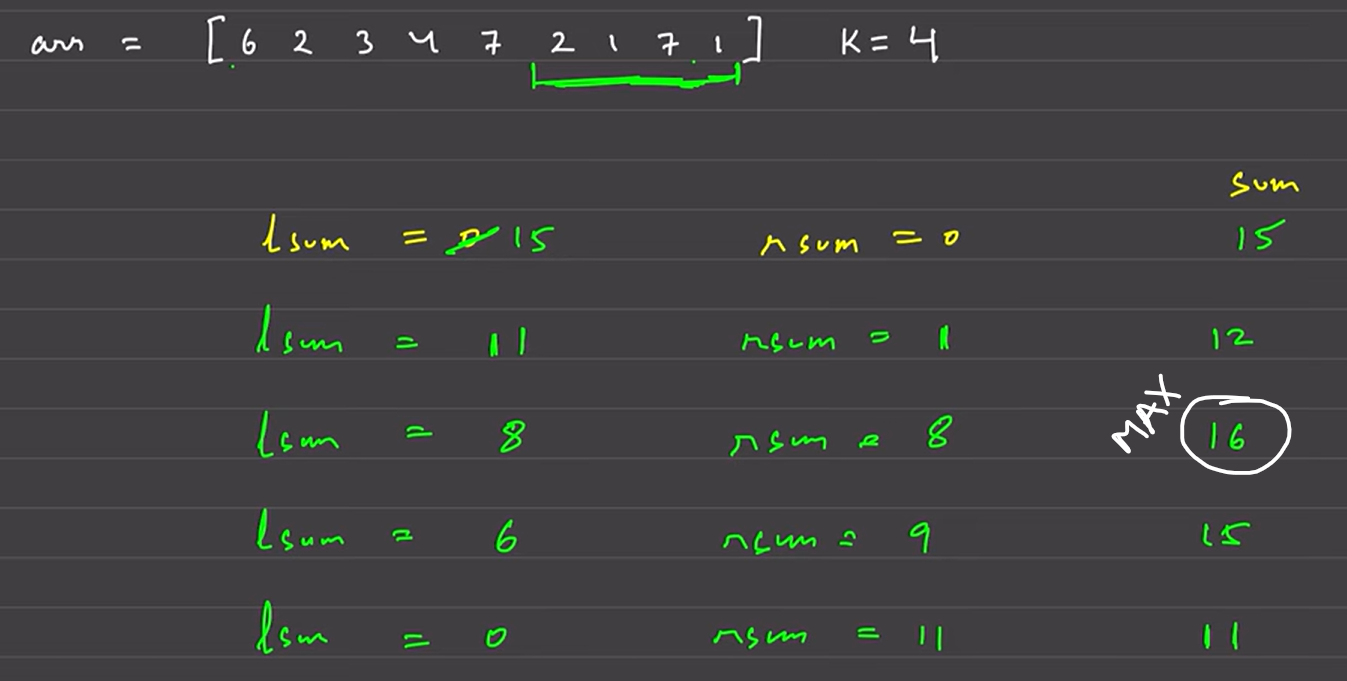 arr = [6 2 3 4 7 2 1 7 1] K = 4
sum
lsum = 0 15 rsum = 0 15
lsum = 11 rsum = 1 12
lsum = 8 rsum = 8 MAX 16
lsum = 6 rsum = 9 15
lsum = 0 rsum = 11 11